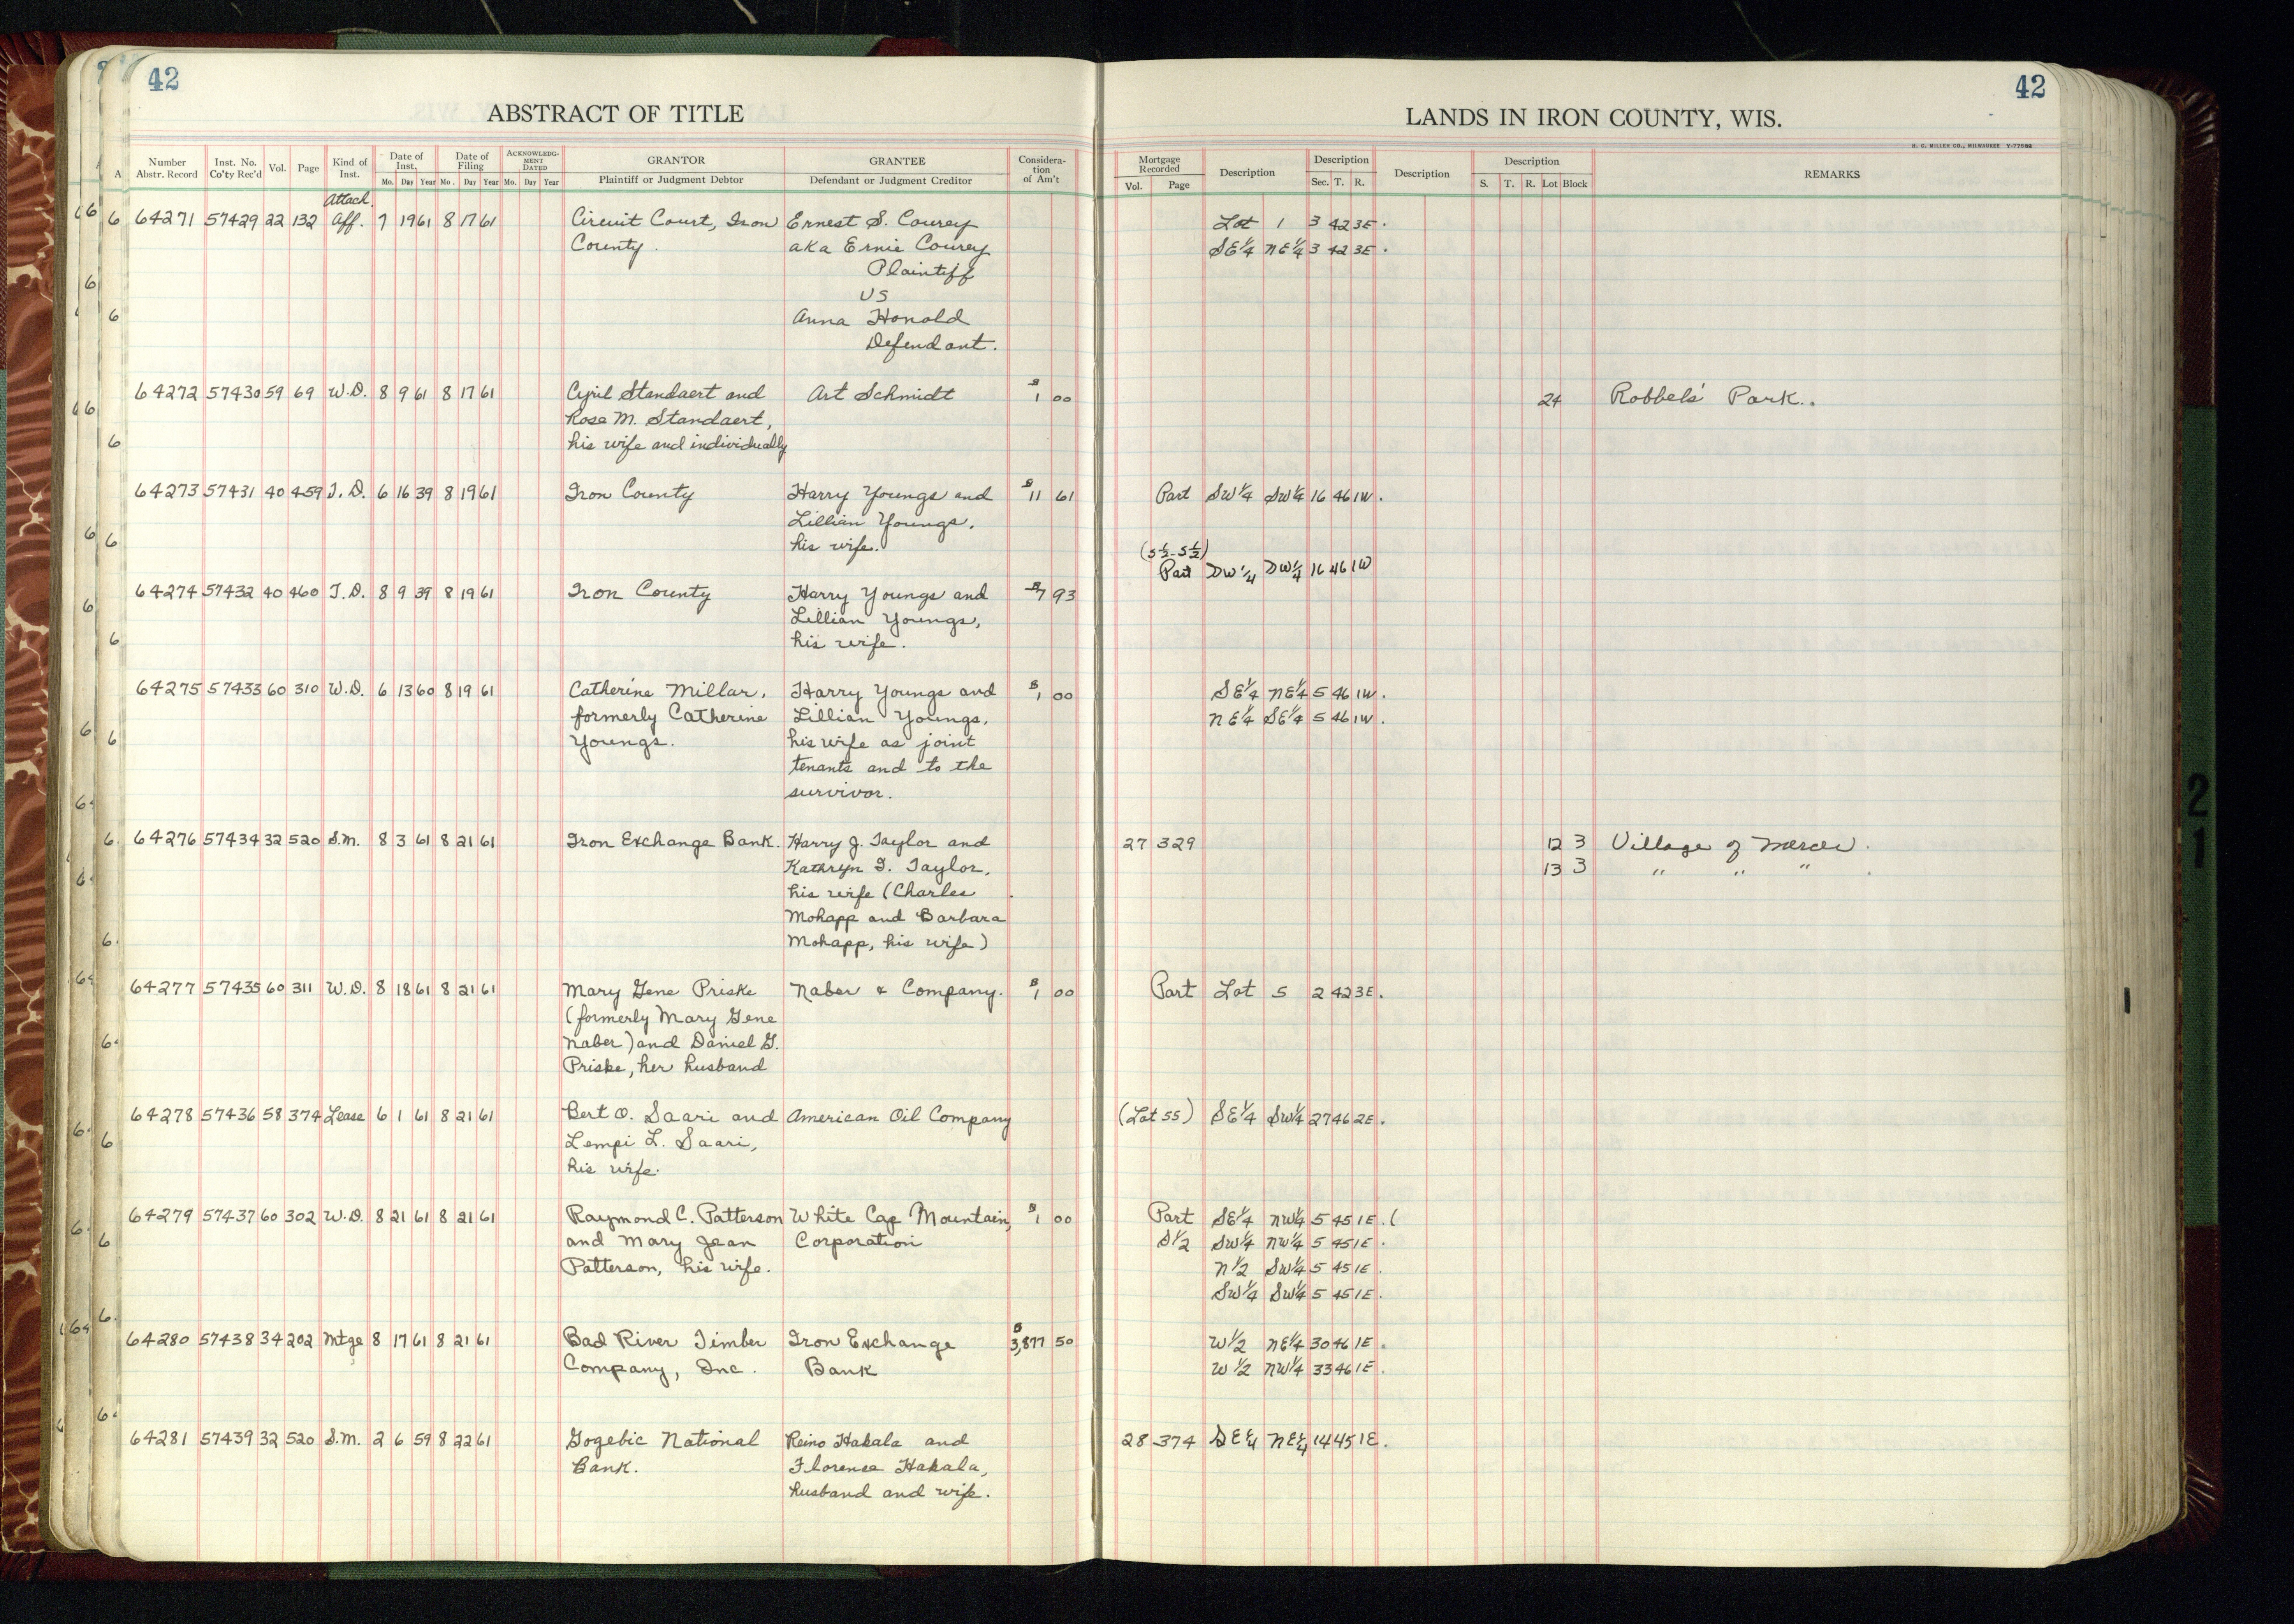 42
ABSTRACT OF TITLE
Number Abstr. Record Inst. No. Co'ty Rec'd Vol. Page Kind of Inst. Date of Inst. Mo. Day Year Date of Filing Mo. Day Year ACKNOWLEDGMENT DATED Mo. Day Year GRANTOR Plaintiff or Judgment Debtor GRANTEE Defendant or Judgment Creditor Consideration of Am't
42
LANDS IN IRON COUNTY, WIS.
H. C. MILLER CO., MILWAUKEE
Mortgage Recorded Vol. Page Description Description Sec. T. R. Description Description S. T. R. Lot Block REMARKS
Attach.
64271 57429 22 132 Aff. 7 19 61 8 17 61 Circuit Court, Iron Ernest S. Courey Lot 1 3 42 3E.
County. aka Ernie Courey SE1/4 NE1/4 3 42 3E.
Plaintiff
vs
Anna Honold
Defendant.
64272 57430 59 69 W.D. 8 9 61 8 17 61 Cyril Standaert and Art Schmidt $1 00 24 Robbels' Park.
Rose M. Standaert,
his wife and individually
64273 57431 40 459 T.D. 6 16 39 8 19 61 Iron County Harry Youngs and $11 61 Part SW1/4 SW1/4 16 46 1W.
Lillian Youngs,
his wife.
(S1/2-S1/2)
Part SW1/4 SW1/4 16 46 1W
64274 57432 40 460 T.D. 8 9 39 8 19 61 Iron County Harry Youngs and $7 93
Lillian Youngs,
his wife.
64275 57433 60 310 W.D. 6 13 60 8 19 61 Catherine Millar, Harry Youngs and $1 00 SE1/4 NE1/4 5 46 1W.
formerly Catherine Lillian Youngs, NE1/4 SE1/4 5 46 1W.
Youngs. his wife as joint
tenants and to the
survivor.
64276 57434 32 520 S.M. 8 3 61 8 21 61 Iron Exchange Bank. Harry J. Taylor and 27 329 12 3 Village of Mercer.
Kathryn T. Taylor, 13 3 " " "
his wife (Charles
Mohapp and Barbara
Mohapp, his wife)
64277 57435 60 311 W.D. 8 18 61 8 21 61 Mary Gene Priske Naber & Company. $1 00 Part Lot 5 2 42 3E.
(formerly Mary Gene
Naber) and Daniel G.
Priske, her husband
64278 57436 58 374 Lease 6 1 61 8 21 61 Bert O. Saari and American Oil Company (Lot 55) SE1/4 SW1/4 27 46 2E.
Lempi L. Saari,
his wife.
64279 57437 60 302 W.D. 8 21 61 8 21 61 Raymond C. Patterson White Cap Mountain, $1 00 Part SE1/4 NW1/4 5 45 1E. (
and Mary Jean Corporation S1/2 SW1/4 NW1/4 5 45 1E.
Patterson, his wife. N1/2 SW1/4 5 45 1E.
SW1/4 SW1/4 5 45 1E.
64280 57438 34 202 Mtge 8 17 61 8 21 61 Bad River Timber Iron Exchange $3,877 50 W1/2 NE1/4 30 46 1E.
Company, Inc. Bank W1/2 NW1/4 33 46 1E.
64281 57439 32 520 S.M. 2 6 59 8 22 61 Gogebic National Reino Hakala and 28 374 SE1/4 NE1/4 14 45 1E.
Bank. Florence Hakala,
husband and wife.